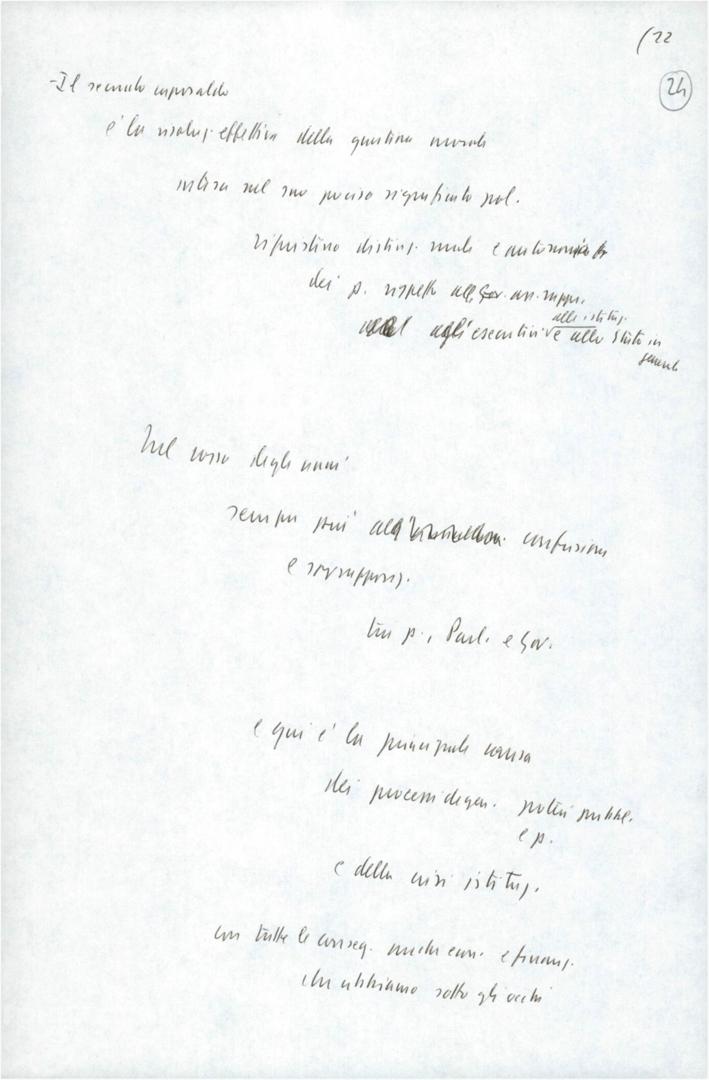 (22
24
-Il secondo caposaldo
è la risoluz. effettiva della questione morale
intesa nel suo preciso significato pol.
ripristino distinz. reale e autonomia
dei p. rispetto
agli esecutivi e allo Stato in
alle istituz.
generale
Nel corso degli anni
sempre più confusione
e sovrapposiz.
tra p., Parl. e Gov.
e qui è la principale causa
dei processi degen. poteri pubbl.
e p.
e della crisi istituz.
con tutte le conseg. anche econ. e finanz.
che abbiamo sotto gli occhi